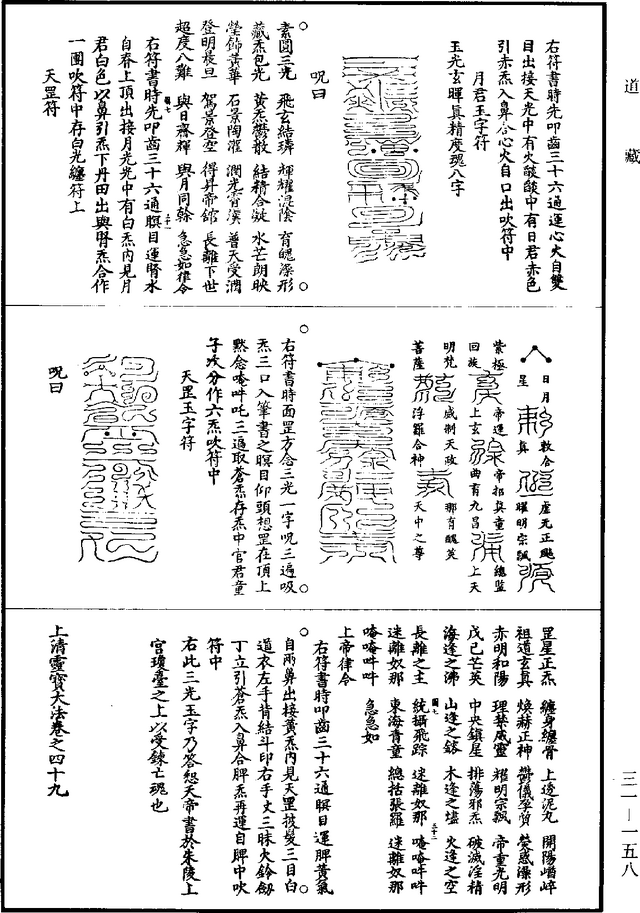 道藏
右符書時先叩齒三十六通運心火自雙
目出接天光中有火燄燄中有日君赤色
引赤炁入鼻合心火自口出吹符中
月君玉字符
玉光玄暉眞精度魂八字
呪曰
素圓三光 飛玄結璘 輝耀混陰 育魄澡形
藏炁包光 黃炁鬱散 結精合凝 水芒朗映
瑩飾黃華 石景陶灌 潤光育漢 普天受潤
登明晨旦 駕景登空 得昇帝館 長離下世
超度八難 與日齋輝 與月同幹 急急如律令
右符書時先叩齒三十六通瞑目運腎水
自脊上頂出接月光光中有白炁內見月
君白色以鼻引炁下丹田出與腎炁合作
一團吹符中存白光纏符上
天罡符
日月 敕合 虛无正颷
星 真 曜明宗飄
紫極 帝運 帝招真童 總監
回旋 上玄 曲育九昌 上天
明梵 威制天政 那育醜英
菩薩 浮羅合神 天中之尊
右符書時面罡方念三光一字呪三遍吸
炁三口入筆書之瞑目仰頭想罡在頂上
黙念唵吽吒三遍取蒼炁存炁中官君童
子次分作六炁吹符中
天罡玉字符
呪曰
罡星正炁 纏身纏骨 上透泥丸 開陽崷崪
祖道玄真 煥赫正神 鬱儀孕質 熒惑澡形
赤明和陽 理禁威靈 耀明宗飄 帝重光明
戊己芒英 中央鎮星 排蕩邪炁 破滅淫精
海逢之沸 山逢之鎔 木逢之燼 火逢之空
長離之主 統攝飛踪 迷離奴那 唵唵吽吽
迷離奴那 東海青童 總括張羅 迷離奴那
唵唵吽吽 急急如
上帝律令
右符書時叩齒三十六通瞑目運脾黃氣
自兩鼻出接黃炁內見天罡披髮三目白
道衣左手肯結斗印右手丈三昧火鈴劒
丁立引蒼炁入鼻合脾炁再運自脾中吹
符中
右此三光玉字乃答恕天帝書於朱陵上
宮瓊臺之上以受鍊亡魂也
上清靈寶大法卷之四十九
三一－一五八